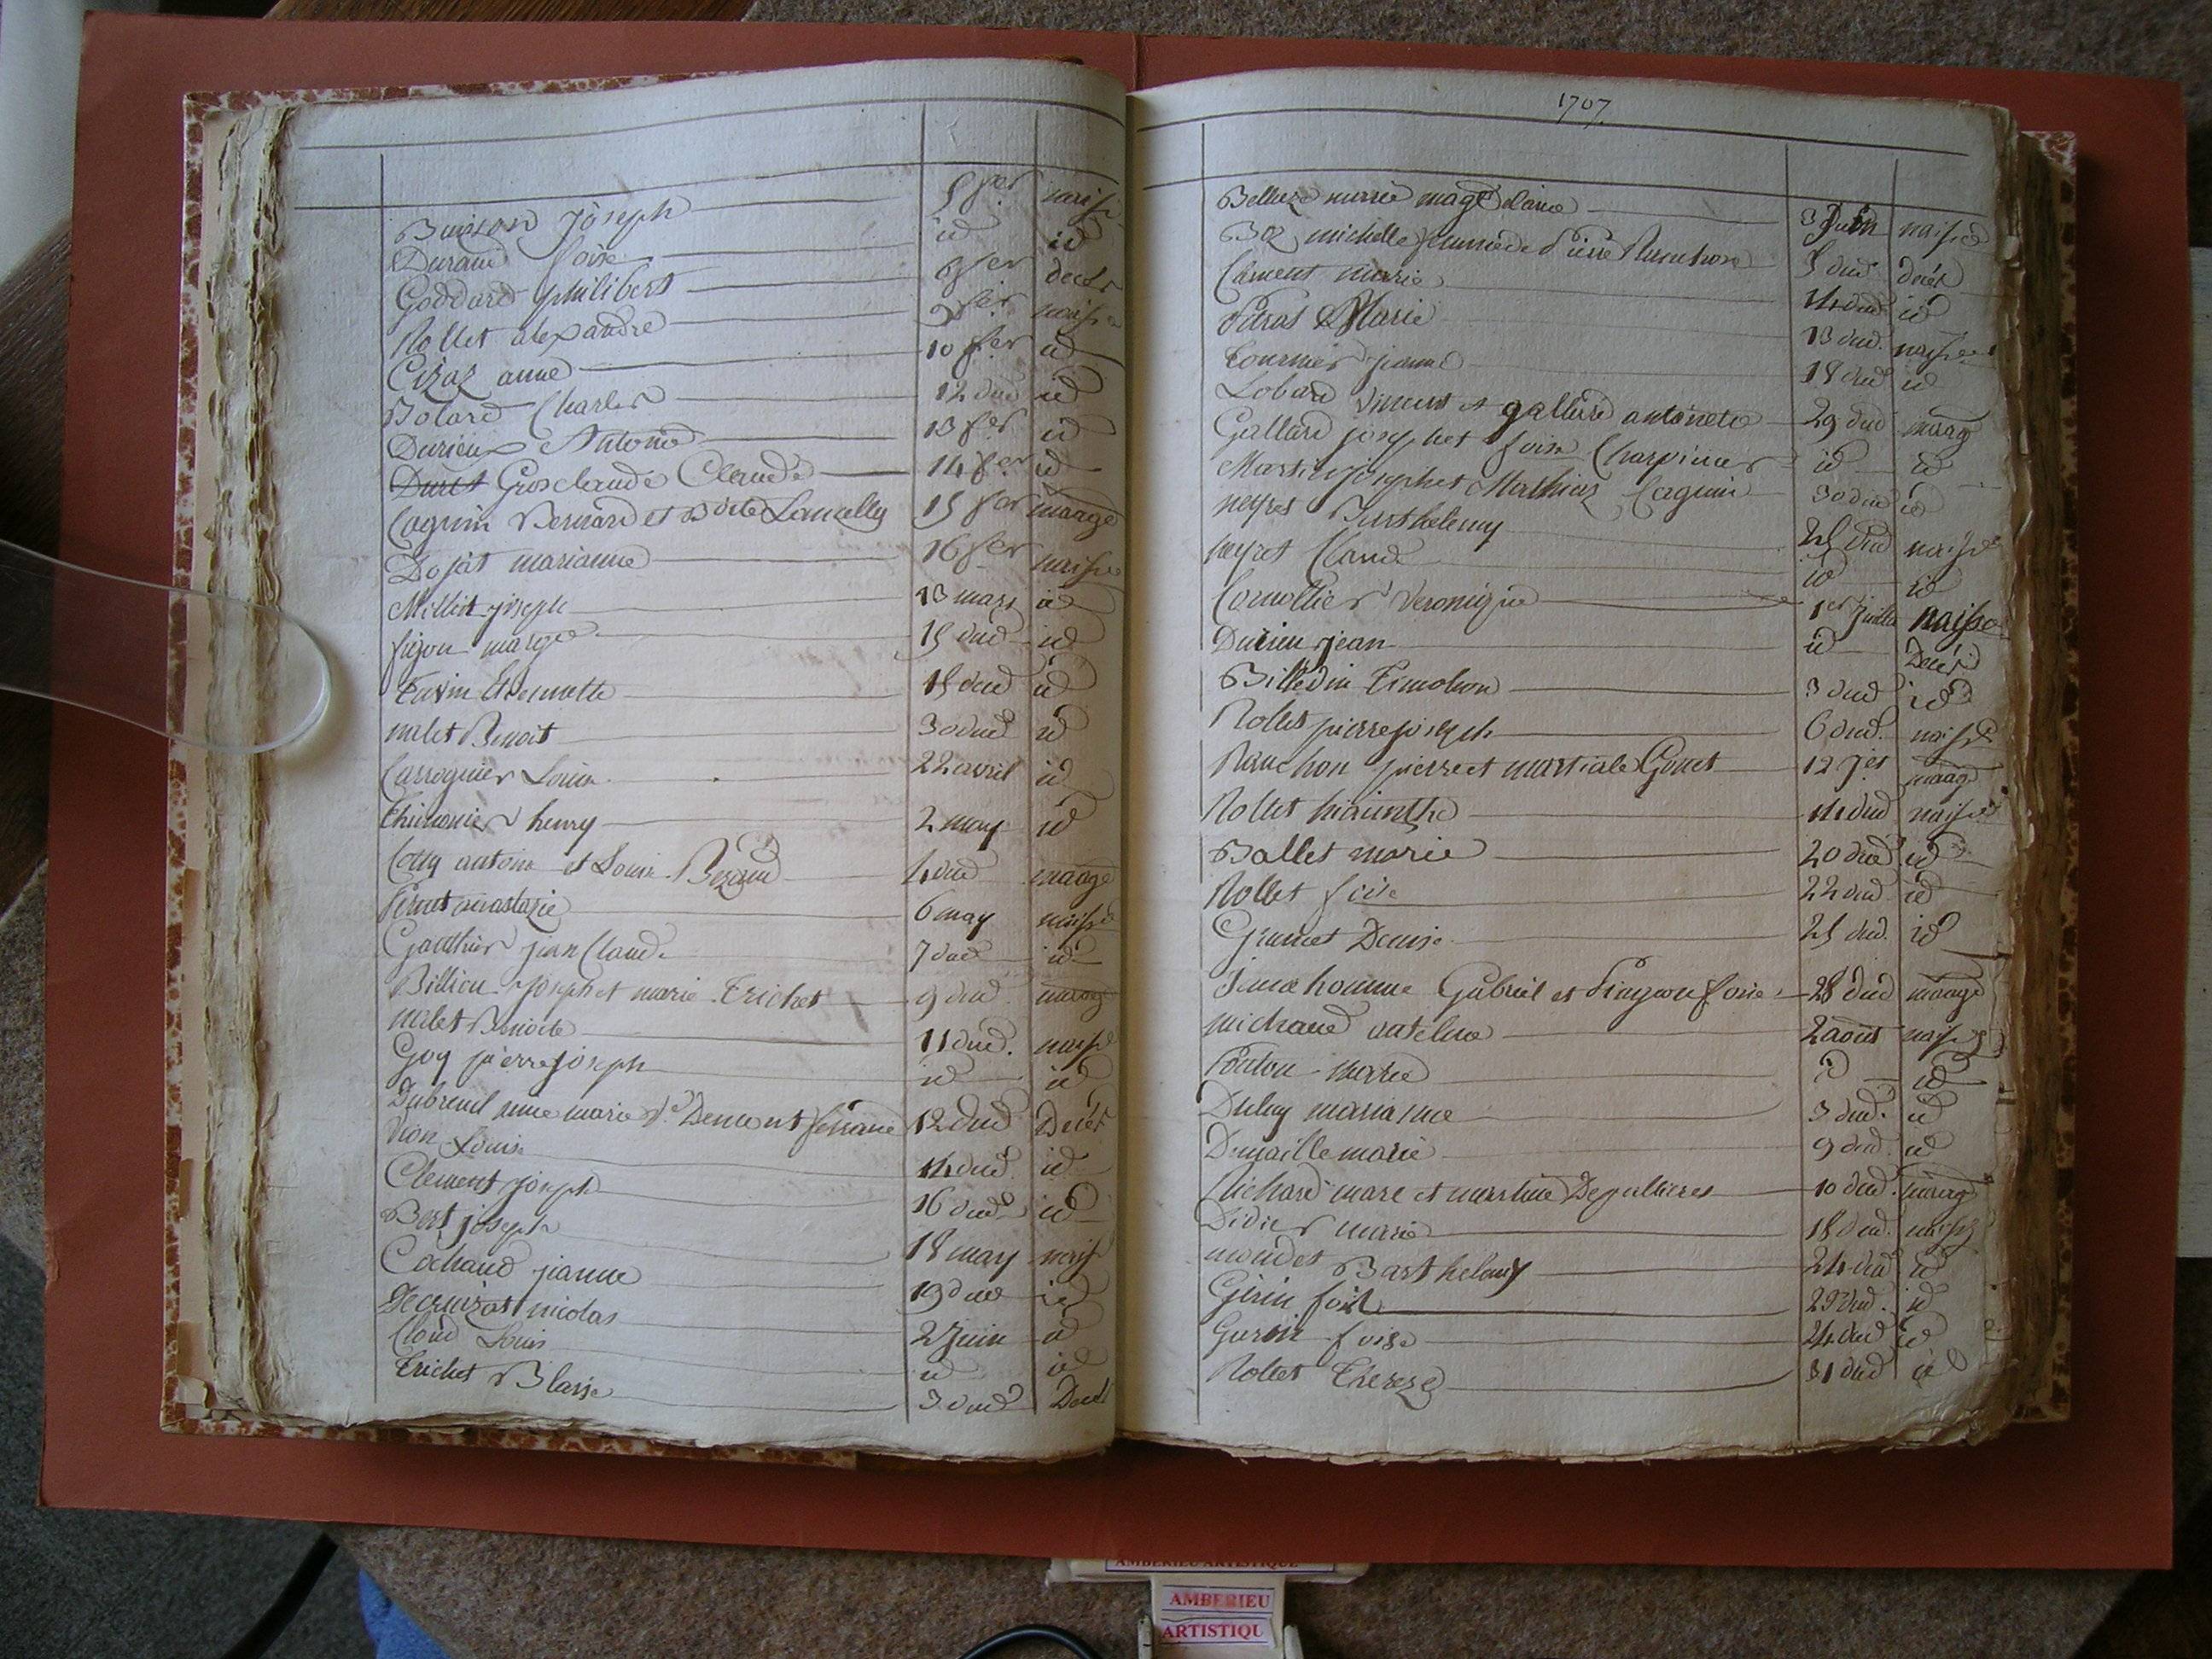 Buisson Joseph 5 fer naiss
Durand foise id id
Goddard philibert 6 fer decès
Rollet alexandre 9 fer naiss
Cizaz anne 10 fer id
Bolard Charles 12 dud id
Durieux Antoine 13 fer id
Duret Grosclaude Claude 14 fer id
Coguin Bernard et 15 fer maage
Dojat marianne 16 fer naiss
Millet joseph 13 mars id
figon 15 dud id
Favin Etiennette 15 dud id
nilet Benoit 30 dud id
Carroguier Louise 22 avril id
Thimonier henry 2 may id
antoine et Louise Bezand 4 dud maage
anastazie 6 may naiss
Gauthier jean Claude 7 dud id
Billion joseph et marie Trichet 9 dud maag
nilet Benoite 11 dud naiss
Goy pierre joseph id id
Dubreuil anne marie 12 dud Decès
Vion Louise 14 dud id
Clement joseph 16 dud id
Bert joseph 18 may naiss
Cochaud jeanne 19 dud id
nicolas 2 juin id
Cloud Louis id id
Trichet Blaise 3 dud Decès
1707
marie magdelaine 3 Juin naiss
Boz michelle femme de Pierre 5 dud decès
Clement marie 14 dud id
Marie 13 dud naiss
Tournier jeanne 18 dud id
Lobard Vincent et gallard antoinete 29 dud maag
Gallard joseph et foise Charvinier id id
Martin joseph et Mathiaz Coguin 30 dud id
neyret Barthelemy 25 dud naiss
neyret Claude id id
Cornollier Veronique 1er Juillet naiss
Durieu jean id Decès
Billedin Timoleon 3 dud id
Rollet pierre joseph 6 dud naiss
Ranchon pierre et martiale Gonet 12 maag
Rollet hiainthe 14 dud naiss
Ballet marie 20 dud id
Rollet foise 22 dud id
Grumet Denise 25 dud id
Gabriel et foise 28 dud maage
michaud antelme 2 aout naiss
marie id
Duluy marianne 3 dud id
Dumaille marie 9 dud id
Richard marc et martine Depullieres 10 dud maag
Didier marie 18 dud naiss
mondet Barthelemy 24 dud id
Girin foise dud id
foise 24 dud id
Rollet Thereze 31 dud id
AMBERIEU ARTISTIQUE
AMBERIEU
ARTISTIQU